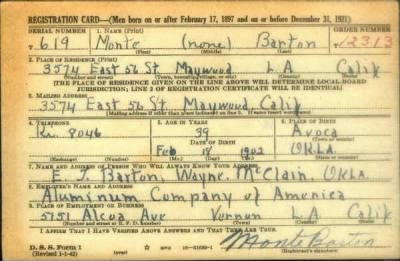 REGISTRATION CARD—(Men born on or after February 17, 1897 and on or before December 31, 1921)
SERIAL NUMBER 1. NAME (Print) ORDER NUMBER
T 619 Monte (none) Barton 12313
(First) (Middle) (Last)
2. PLACE OF RESIDENCE (Print)
3574 East 56 St Maywood L A Calif
(Number and street) (Town, township, village, or city) (County) (State)
[THE PLACE OF RESIDENCE GIVEN ON THE LINE ABOVE WILL DETERMINE LOCAL BOARD
JURISDICTION; LINE 2 OF REGISTRATION CERTIFICATE WILL BE IDENTICAL]
3. MAILING ADDRESS
3574 East 56 St. Maywood Calif
[Mailing address if other than place indicated on line 2. If same insert word same]
4. TELEPHONE 5. AGE IN YEARS 6. PLACE OF BIRTH
39 Avoca
DATE OF BIRTH (Town or county)
8046 Feb 18 1902 OKLA.
(Exchange) (Number) (Mo.) (Day) (Yr.) (State or country)
7. NAME AND ADDRESS OF PERSON WHO WILL ALWAYS KNOW YOUR ADDRESS
E. T. Barton, Wayne, McClain, OKLA.
8. EMPLOYER'S NAME AND ADDRESS
Aluminum Company of America
9. PLACE OF EMPLOYMENT OR BUSINESS
5151 Alcoa Ave Vernon L A Calif
(Number and street or R. F. D. number) (Town) (County) (State)
I AFFIRM THAT I HAVE VERIFIED ABOVE ANSWERS AND THAT THEY ARE TRUE.
D. S. S. FORM 1
(Revised 1-1-42) (over) Monte Barton
(Registrant's signature)